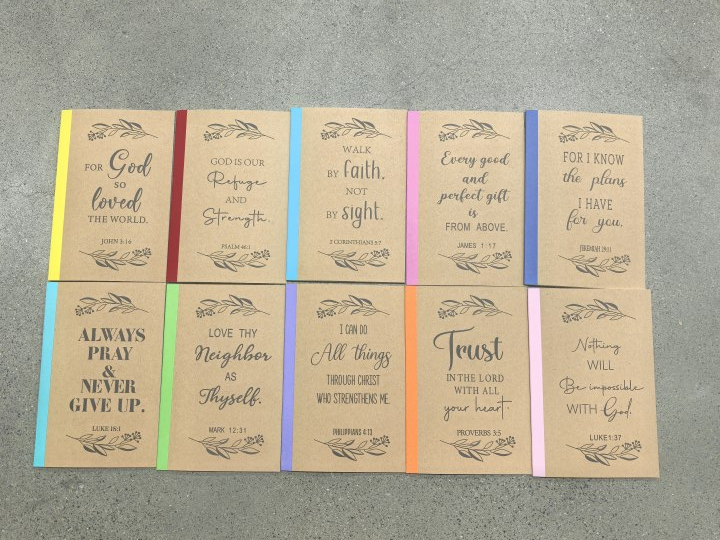 FOR God
SO
loved
THE WORLD.
JOHN 3:16
GOD IS OUR
Refuge
AND
Strength.
PSALM 46:1
WALK
BY faith,
NOT
BY sight.
2 CORINTHIANS 5:7
Every good
and
perfect gift
is
FROM ABOVE.
JAMES 1:17
FOR I KNOW
the plans
I HAVE
for you.
JEREMIAH 29:11
ALWAYS
PRAY
&
NEVER
GIVE UP.
LUKE 18:1
LOVE THY
Neighbor
AS
Thyself.
MARK 12:31
I CAN DO
All things
THROUGH CHRIST
WHO STRENGTHENS ME.
PHILIPPIANS 4:13
Trust
IN THE LORD
WITH ALL
your heart.
PROVERBS 3:5
Nothing
WILL
Be impossible
WITH God.
LUKE 1:37